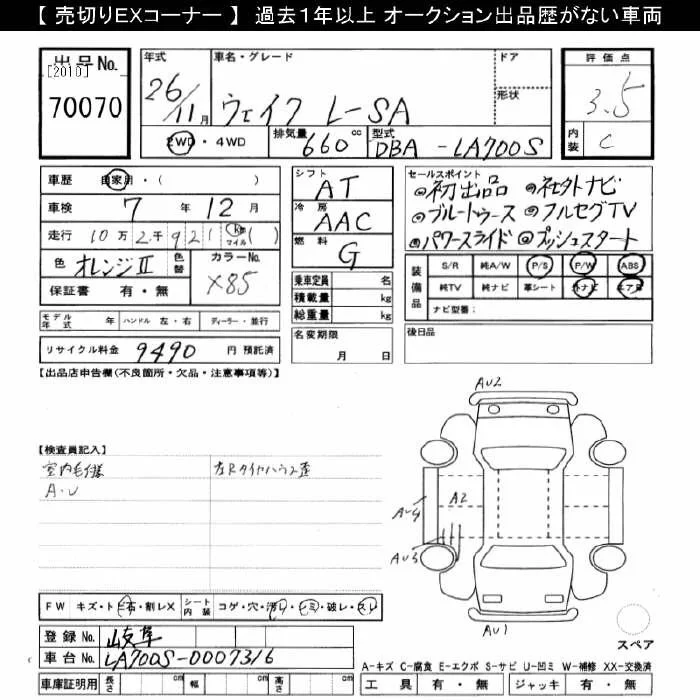 【 売切りEXコーナー 】 過去1年以上 オークション出品歴がない車両
出品No.
[2010]
70070
年式
26/11月
車名・グレード
ウェイク L-SA
ドア
形状
評価点
3.5
内装
C
2WD・4WD
排気量
660cc
型式
DBA-LA700S
車歴 自家用・( )
車検 7年 12月
走行 10万2千921 km マイル ( )
色 オレンジⅡ
色替
カラーNo.
X85
保証書 有・無
シフト
AT
冷房
AAC
燃料
G
乗車定員 名
積載量 kg
総重量 kg
セールスポイント
◎初出品 ◎社外ナビ
◎ブルートゥース ◎フルセグTV
◎パワースライド ◎プッシュスタート
装備品
S/R 純A/W P/S P/W ABS
純TV 純ナビ 革シート 外ナビ エアB
ナビ型番:
モデル年式 年 ハンドル 左・右 ディーラー・並行
名変期限
月 日
後日品
リサイクル料金 9490 円 預託済
【出品店申告欄(不良箇所・欠品・注意事項等)】
【検査員記入】
室内毛仕様
A・U
左Rタイヤハウス歪
AU2
AU4
A2
AU3
AU1
スペア
FW キズ・トビ石・割レX
シート内装 コゲ・穴・汚レ・シミ・破レ・スレ
登録No. 岐阜
車台No. LA700S-0007316
A-キズ C-腐食 E-エクボ S-サビ U-凹ミ W-補修 XX-交換済
車庫証明用 長さ cm 幅 cm 高さ cm
工具 有・無 ジャッキ 有・無